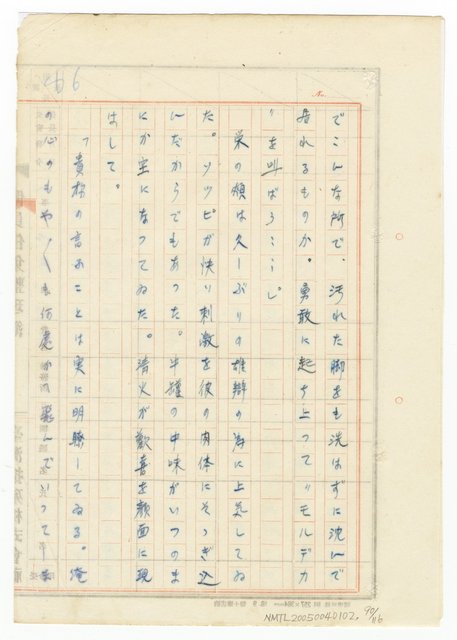 でこんな所で、汚れた脚をも洗はずに沈んで
居れるものか。勇敢に起ち上つて〃モルデカ
〃を叫ばう……」。
栄の頬は久しぶりの雄辯の為に上気してゐ
た。ソツピが快い刺激を彼の肉体にそつぎ込
んだからでもあつた。半罐の中味がいつのま
にか空になつてゐた。清火が歓喜を顔面に現
はして。
「貴様の言ふことは実に明瞭してゐる。俺
の心のもや〱も何處かへ飛んでいつて
No.
NMTL20050040102, 90/116